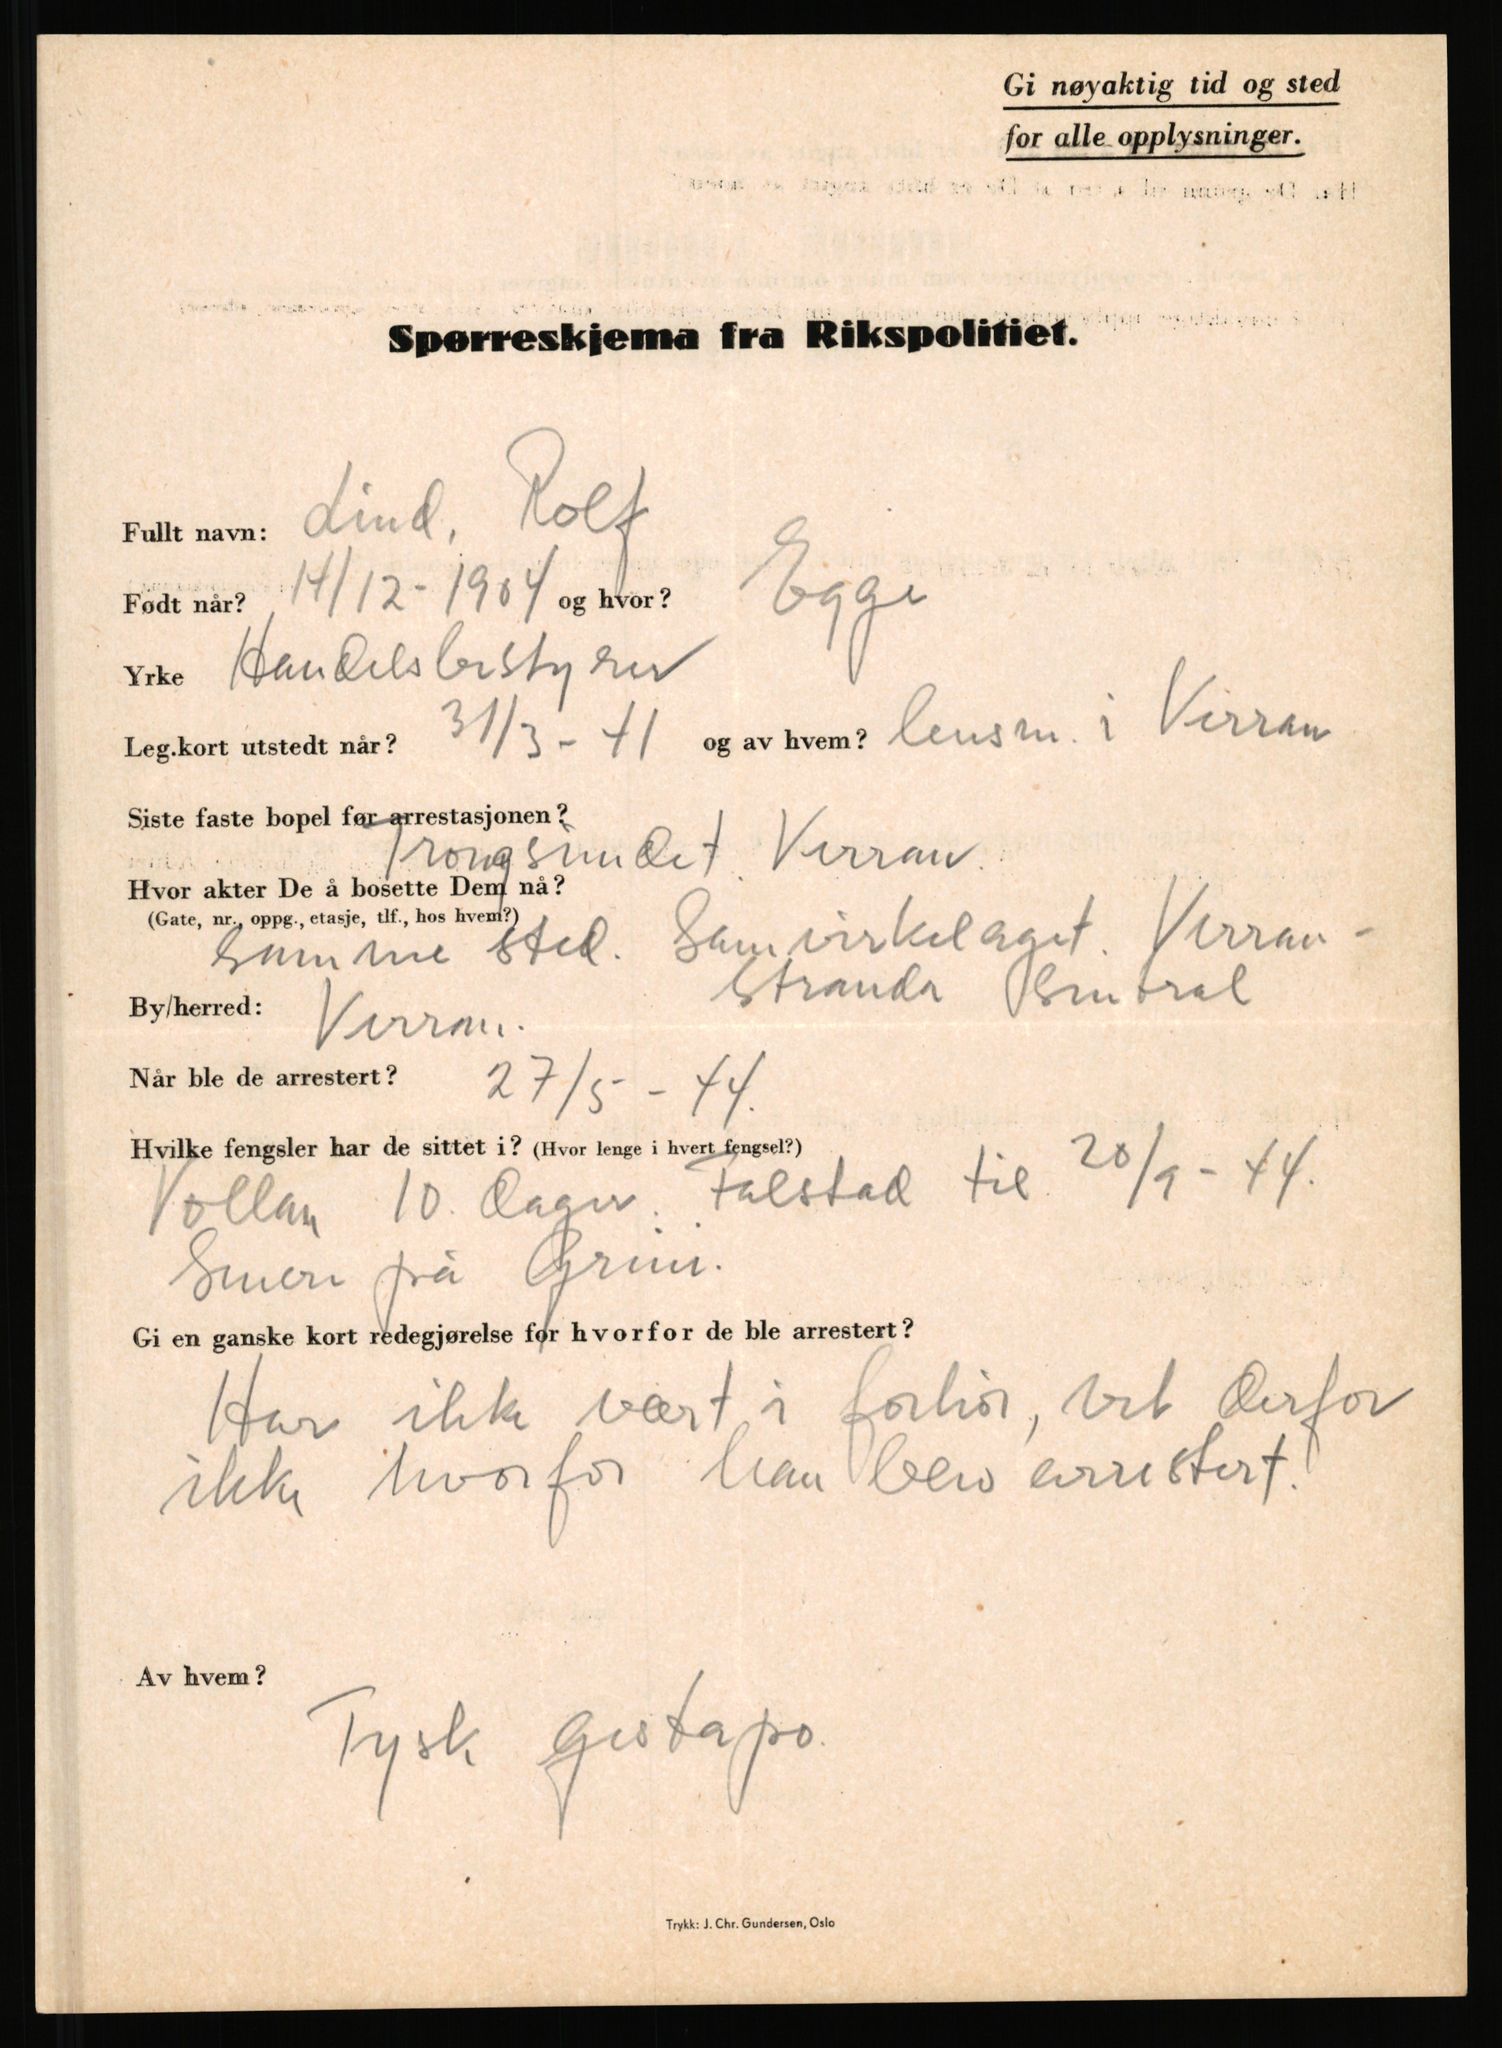 Gi nøyaktig tid og sted
for alle opplysninger.
Spørreskjema fra Rikspolitiet.
Fullt navn: Lind, Rolf
Født når? 14/12-1904 og hvor? Egge
Yrke Handelsbestyrer
Leg.kort utstedt når? 31/3-41 og av hvem? lensm. i Verran
Siste faste bopel før arrestasjonen?
Trongsundet, Verran.
Hvor akter De å bosette Dem nå?
(Gate, nr., oppg., etasje, tlf., hos hvem?)
Samme sted. Samvirkelaget. Verran-
stranda Sentral
By/herred: Verran.
Når ble de arrestert? 27/5-44.
Hvilke fengsler har de sittet i? (Hvor lenge i hvert fengsel?)
Vollan 10. dager. Falstad til 20/9-44.
Senere på Grini.
Gi en ganske kort redegjørelse for hvorfor de ble arrestert?
Har ikke vært i forhør, vet derfor
ikke hvorfor han blev arrestert.
Av hvem?
Tysk gestapo.
Trykk: J. Chr. Gundersen, Oslo